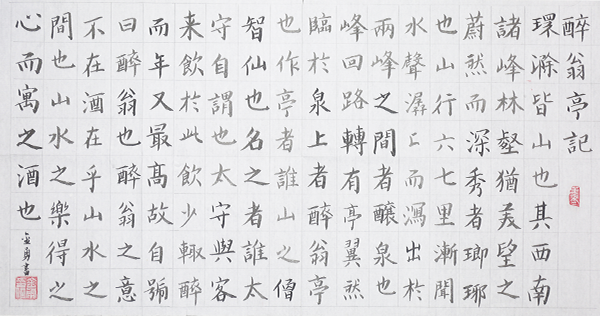 醉翁亭記
環滁皆山也其西南
諸峰林壑猶美望之
蔚然而深秀者瑯琊
也山行六七里漸聞
水聲潺〻而瀉出於
兩峰之間者釀泉也
峰回路轉有亭翼然
臨於泉上者醉翁亭
也作亭者誰山之僧
智仙也名之者誰太
守自謂也太守與客
来飲於此飲少輒醉
而年又最高故自號
曰醉翁也醉翁之意
不在酒在乎山水之
間也山水之樂得之
心而寓之酒也